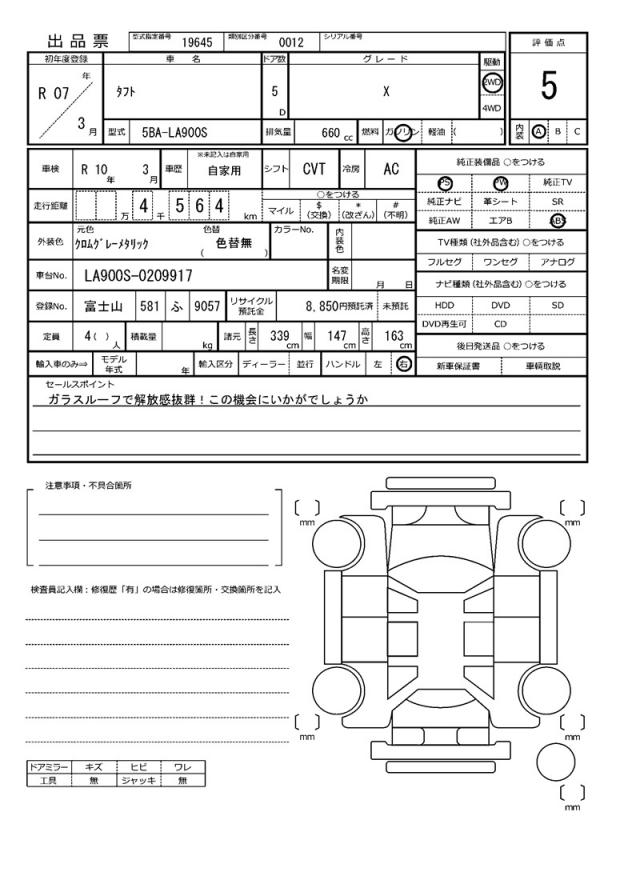 出品票
型式指定番号 19645 類別区分番号 0012 シリアル番号
評価点
初年度登録 車名 ドア数 グレード 駆動
R 07 年 3 月
タフト
5 D
X
2WD
4WD
5
型式 5BA-LA900S 排気量 660 cc 燃料 ガソリン 軽油 ( )
内装 A B C
車検 R 10 年 3 月 車歴 ※未記入は自家用 自家用 シフト CVT 冷房 AC
純正装備品 ○をつける
PS PW 純正TV
純正ナビ 革シート SR
純正AW エアB ABS
走行距離 万 4 千 5 6 4 km
○をつける
マイル $(交換) *(改ざん) #(不明)
外装色 元色 クロムグレーメタリック 色替 ( 色替無 )
カラーNo. 内装色
TV種類 (社外品含む) ○をつける
フルセグ ワンセグ アナログ
車台No. LA900S-0209917 名変期限 月 日
ナビ種類 (社外品含む) ○をつける
HDD DVD SD
DVD再生可 CD
登録No. 富士山 581 ふ 9057 リサイクル預託金 8,850円預託済 未預託
定員 4( ) 人 積載量 kg 諸元 長さ 339 cm 幅 147 cm 高さ 163 cm
後日発送品 ○をつける
新車保証書 車輌取説
輸入車のみ⇒ モデル年式 年 輸入区分 ディーラー 並行 ハンドル 左 右
セールスポイント
ガラスルーフで解放感抜群！この機会にいかがでしょうか
注意事項・不具合箇所
検査員記入欄：修復歴「有」の場合は修復箇所・交換箇所を記入
mm
mm
mm
mm
mm
ドアミラー キズ ヒビ ワレ
工具 無 ジャッキ 無